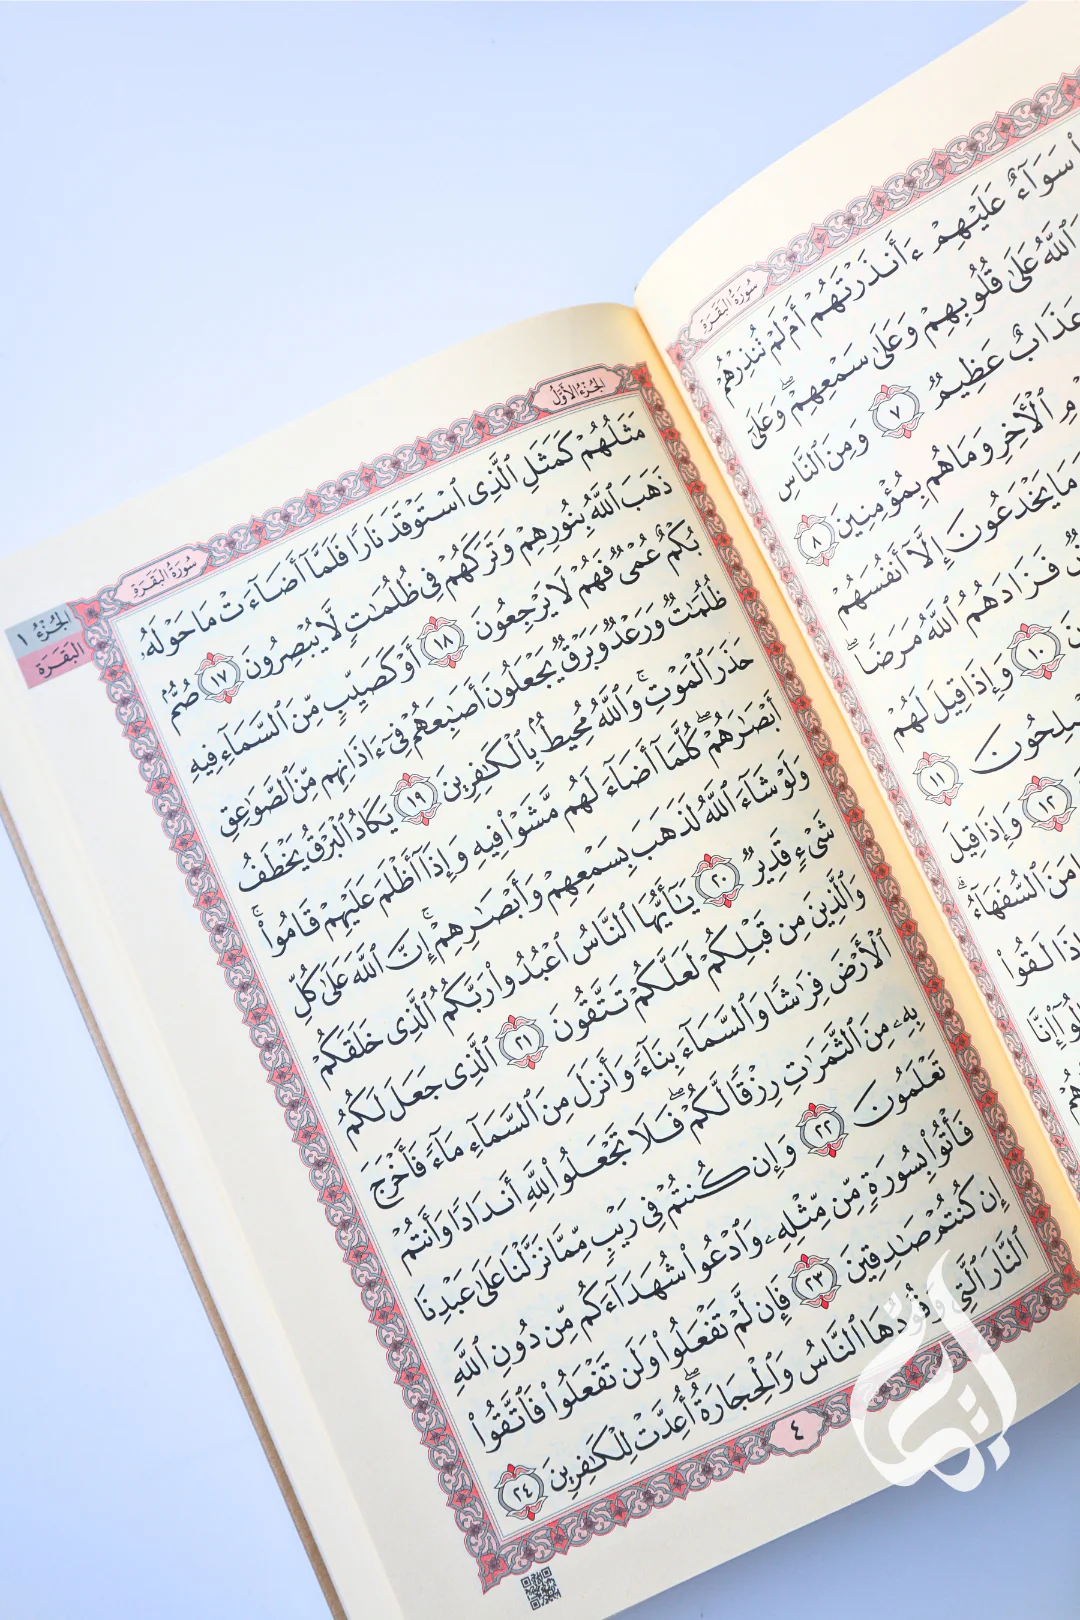 سُورَةُ البَقَرَةِ
سَوَآءٌ عَلَيْهِمْ ءَأَنذَرْتَهُمْ أَمْ لَمْ تُنذِرْهُمْ
ٱللَّهُ عَلَىٰ قُلُوبِهِمْ وَعَلَىٰ سَمْعِهِمْ ۖ وَعَلَىٰ
عَذَابٌ عَظِيمٌ ٧ وَمِنَ ٱلنَّاسِ
ٱلْأَخِرِ وَمَا هُم بِمُؤْمِنِينَ ٨
وَمَا يَخْدَعُونَ إِلَّآ أَنفُسَهُمْ
فَزَادَهُمُ ٱللَّهُ مَرَضًا ۖ
١٠ وَإِذَا قِيلَ لَهُمْ
١١
١٢ وَإِذَا قِيلَ
ٱلسُّفَهَآءُ ۗ
لَقُوا۟
الجُزْءُ الأَوَّلُ
سُورَةُ البَقَرَةِ
الجُزْءُ ١
البَقَرَة
مَثَلُهُمْ كَمَثَلِ ٱلَّذِى ٱسْتَوْقَدَ نَارًا فَلَمَّآ أَضَآءَتْ مَا حَوْلَهُۥ
ذَهَبَ ٱللَّهُ بِنُورِهِمْ وَتَرَكَهُمْ فِى ظُلُمَٰتٍ لَّا يُبْصِرُونَ ١٧ صُمٌّۢ
بُكْمٌ عُمْىٌ فَهُمْ لَا يَرْجِعُونَ ١٨ أَوْ كَصَيِّبٍ مِّنَ ٱلسَّمَآءِ فِيهِ
ظُلُمَٰتٌ وَرَعْدٌ وَبَرْقٌ يَجْعَلُونَ أَصَٰبِعَهُمْ فِىٓ ءَاذَانِهِم مِّنَ ٱلصَّوَٰعِقِ
حَذَرَ ٱلْمَوْتِ ۚ وَٱللَّهُ مُحِيطٌۢ بِٱلْكَٰفِرِينَ ١٩ يَكَادُ ٱلْبَرْقُ يَخْطَفُ
أَبْصَٰرَهُمْ ۖ كُلَّمَآ أَضَآءَ لَهُم مَّشَوْا۟ فِيهِ وَإِذَآ أَظْلَمَ عَلَيْهِمْ قَامُوا۟ ۚ
وَلَوْ شَآءَ ٱللَّهُ لَذَهَبَ بِسَمْعِهِمْ وَأَبْصَٰرِهِمْ ۚ إِنَّ ٱللَّهَ عَلَىٰ كُلِّ
شَىْءٍ قَدِيرٌ ٢٠ يَٰٓأَيُّهَا ٱلنَّاسُ ٱعْبُدُوا۟ رَبَّكُمُ ٱلَّذِى خَلَقَكُمْ
وَٱلَّذِينَ مِن قَبْلِكُمْ لَعَلَّكُمْ تَتَّقُونَ ٢١ ٱلَّذِى جَعَلَ لَكُمُ
ٱلْأَرْضَ فِرَٰشًا وَٱلسَّمَآءَ بِنَآءً وَأَنزَلَ مِنَ ٱلسَّمَآءِ مَآءً فَأَخْرَجَ
بِهِۦ مِنَ ٱلثَّمَرَٰتِ رِزْقًا لَّكُمْ ۖ فَلَا تَجْعَلُوا۟ لِلَّهِ أَندَادًا وَأَنتُمْ
تَعْلَمُونَ ٢٢ وَإِن كُنتُمْ فِى رَيْبٍ مِّمَّا نَزَّلْنَا عَلَىٰ عَبْدِنَا
فَأْتُوا۟ بِسُورَةٍ مِّن مِّثْلِهِۦ وَٱدْعُوا۟ شُهَدَآءَكُم مِّن دُونِ ٱللَّهِ
إِن كُنتُمْ صَٰدِقِينَ ٢٣ فَإِن لَّمْ تَفْعَلُوا۟ وَلَن تَفْعَلُوا۟ فَٱتَّقُوا۟
ٱلنَّارَ ٱلَّتِى وَقُودُهَا ٱلنَّاسُ وَٱلْحِجَارَةُ ۖ أُعِدَّتْ لِلْكَٰفِرِينَ ٢٤
٤